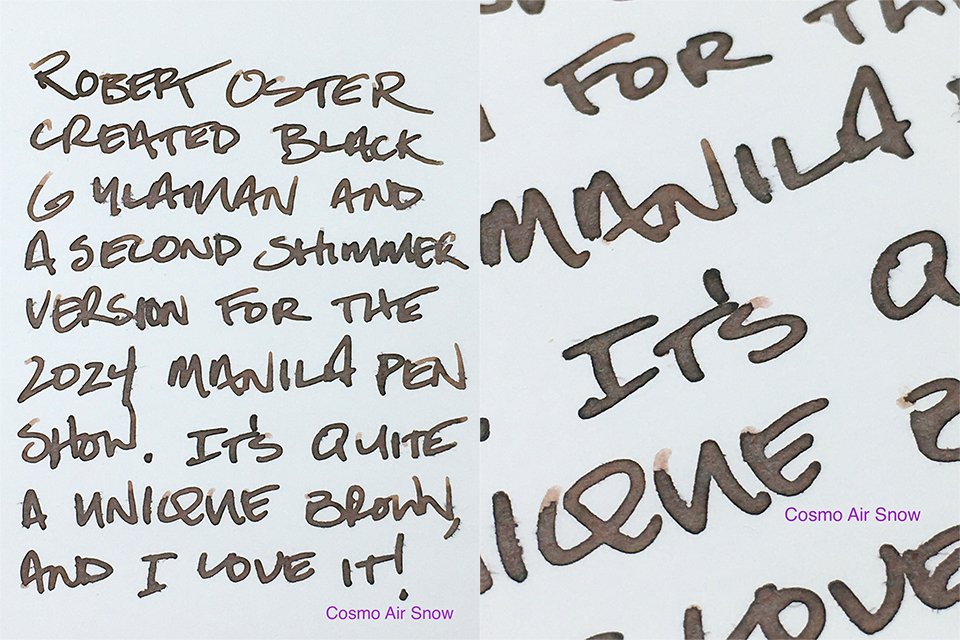 ROBERT OSTER
CREATED BLACK
GYLAMAN AND
A SECOND SHIMMER
VERSION FOR THE
2024 MANILA PEN
SHOW. IT'S QUITE
A UNIQUE BROWN,
AND I LOVE IT!
Cosmo Air Snow
FOR TH
MANILA
. IT'S Q
IQUE B
Cosmo Air Snow
LOVE